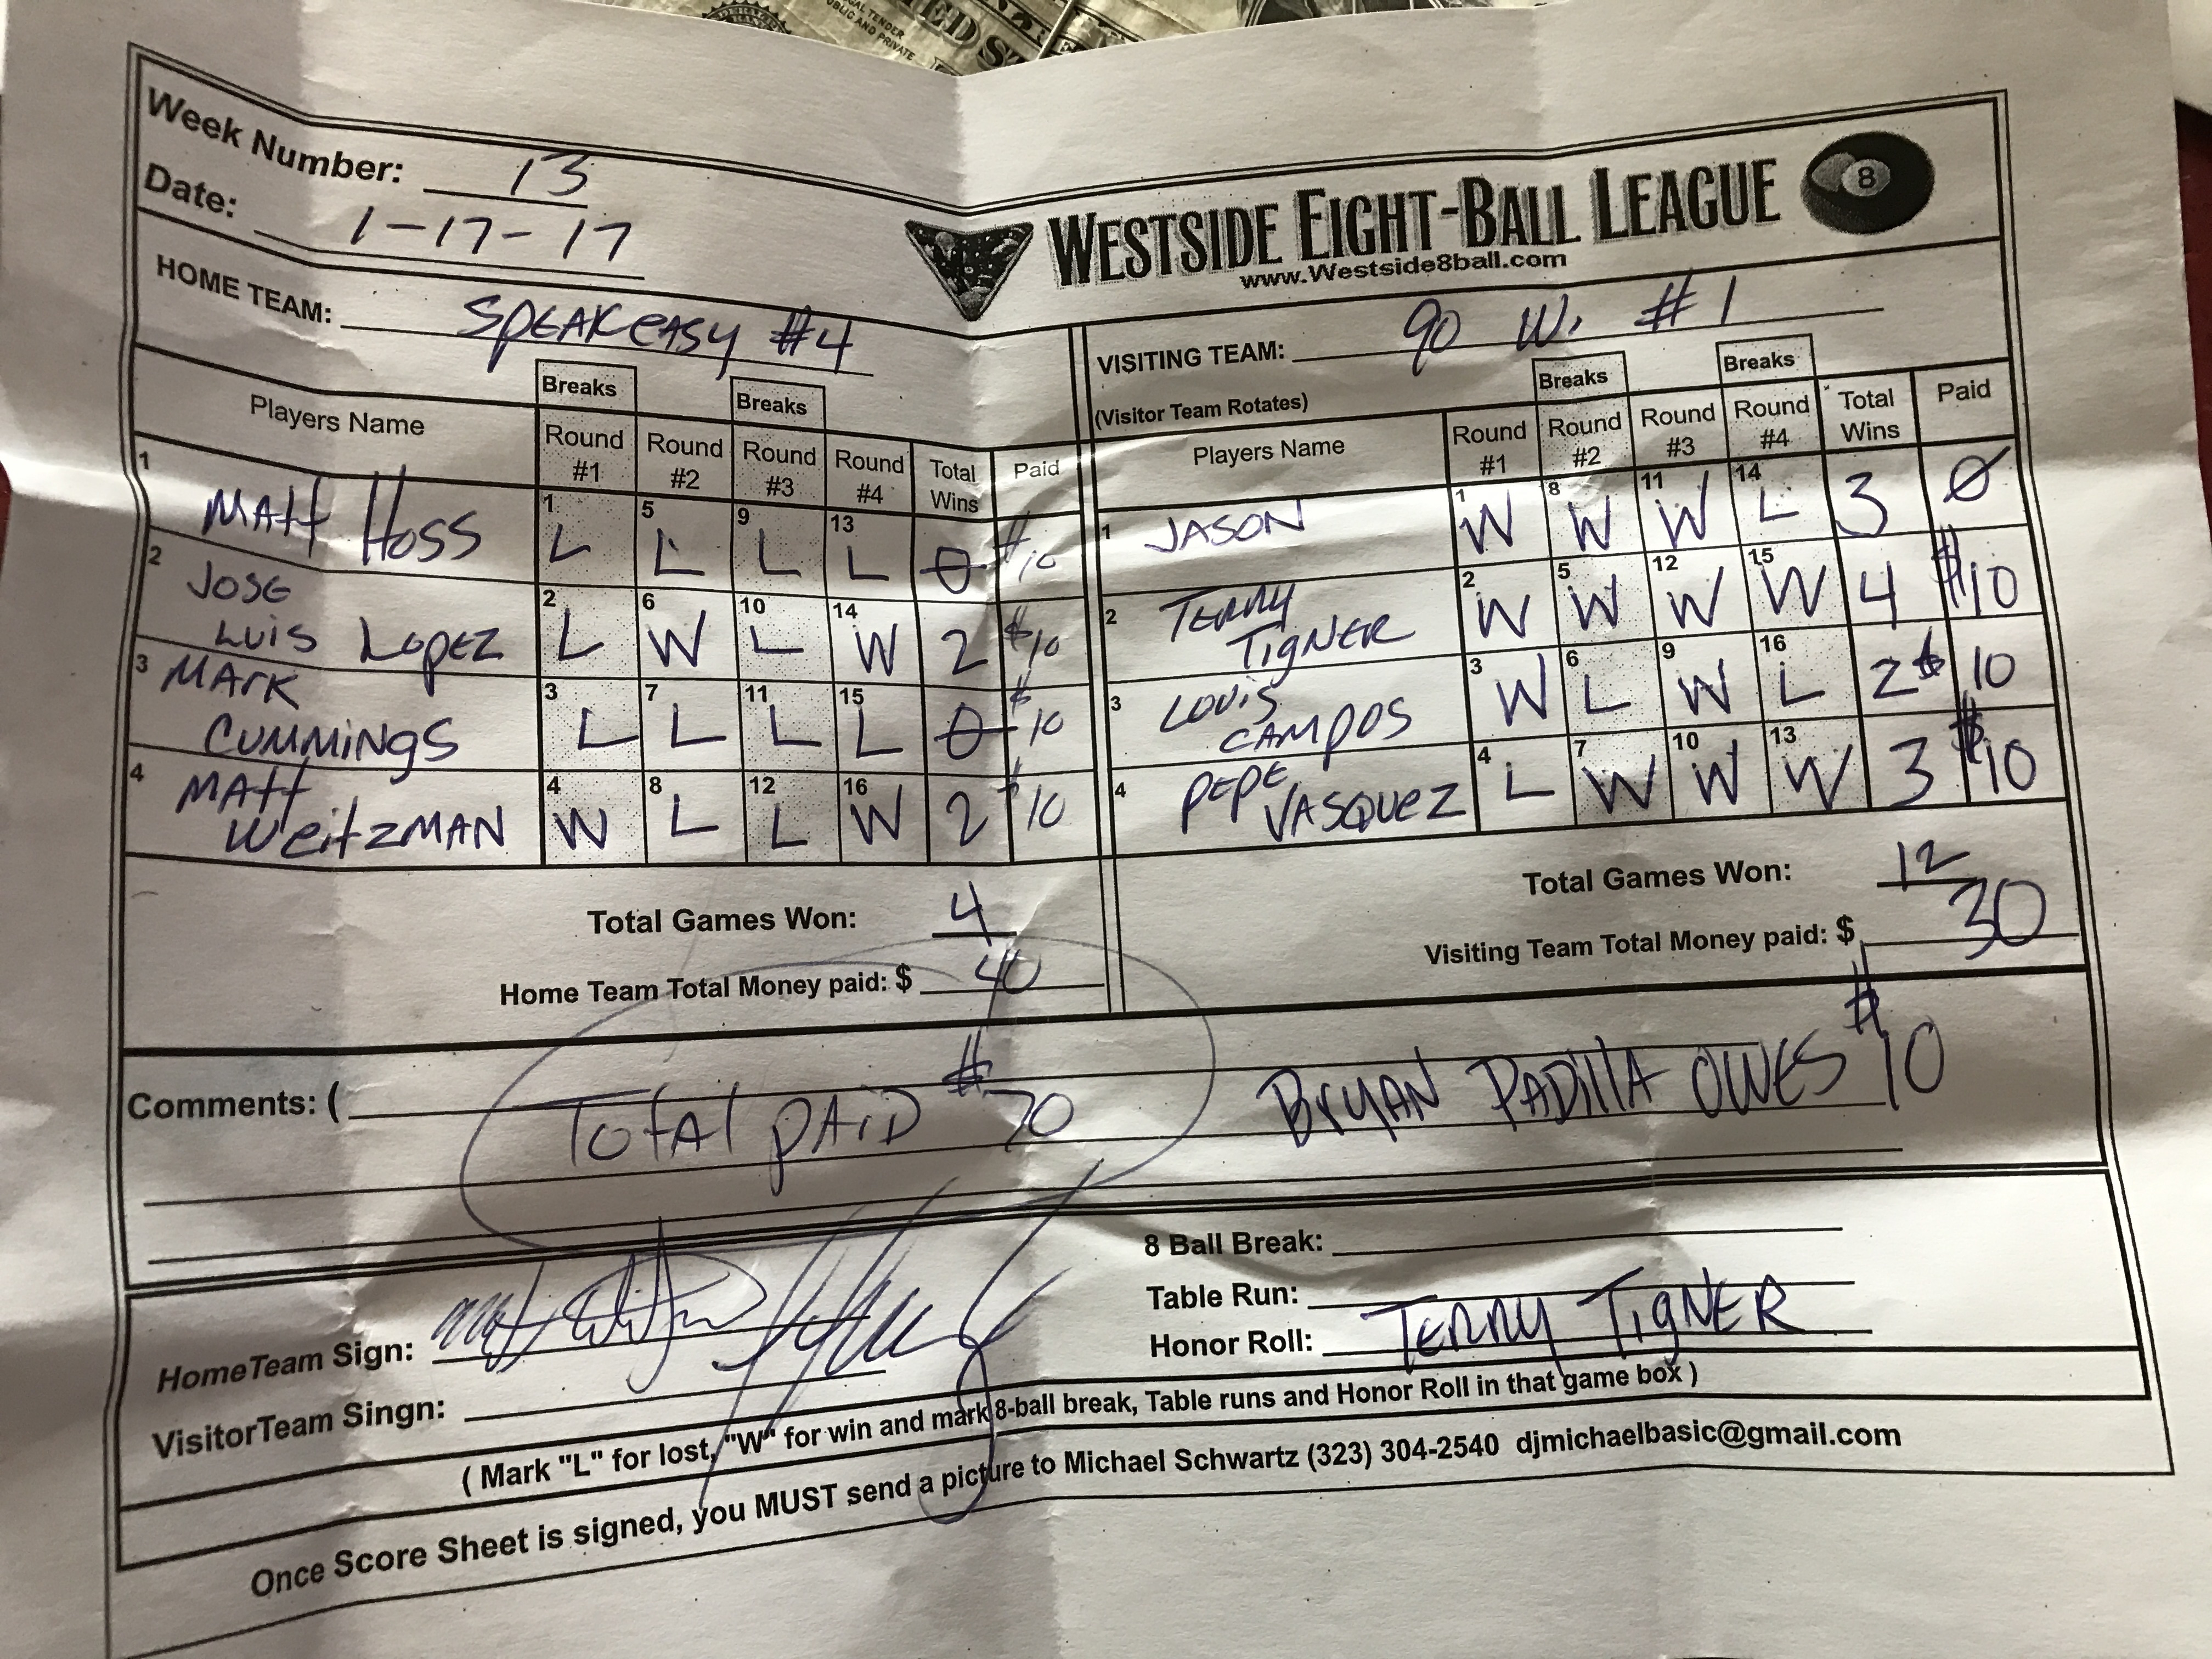 Week Number: 13
Date: 1-17-17
WESTSIDE EIGHT-BALL LEAGUE 8
www.Westside8ball.com
HOME TEAM: SPEAKEASY #4
Breaks Breaks
Players Name Round #1 Round #2 Round #3 Round #4 Total Wins Paid
1 MATT HOSS 1 L 5 L 9 L 13 L 0 $10
2 JOSE LUIS LOPEZ 2 L 6 W 10 L 14 W 2 $10
3 MARK CUMMINGS 3 L 7 L 11 L 15 L 0 $10
4 MATT WEITZMAN 4 W 8 L 12 L 16 W 2 $10
Total Games Won: 4
Home Team Total Money paid: $ 40
VISITING TEAM: 90 W. #1
Breaks Breaks
(Visitor Team Rotates)
Players Name Round #1 Round #2 Round #3 Round #4 Total Wins Paid
1 JASON 1 W 8 W 11 W 14 L 3 0
2 TERRY TIGNER 2 W 5 W 12 W 15 W 4 $10
3 LOUIS CAMPOS 3 W 6 L 9 W 16 L 2 $10
4 PEPE VASQUEZ 4 L 7 W 10 W 13 W 3 $10
Total Games Won: 12
Visiting Team Total Money paid: $ 30
Comments: ( TOTAL PAID $70 BRYAN PADILLA OWES $10
8 Ball Break:
Table Run:
Honor Roll: TERRY TIGNER
HomeTeam Sign:
VisitorTeam Singn:
( Mark "L" for lost, "W" for win and mark 8-ball break, Table runs and Honor Roll in that game box )
Once Score Sheet is signed, you MUST send a picture to Michael Schwartz (323) 304-2540 djmichaelbasic@gmail.com